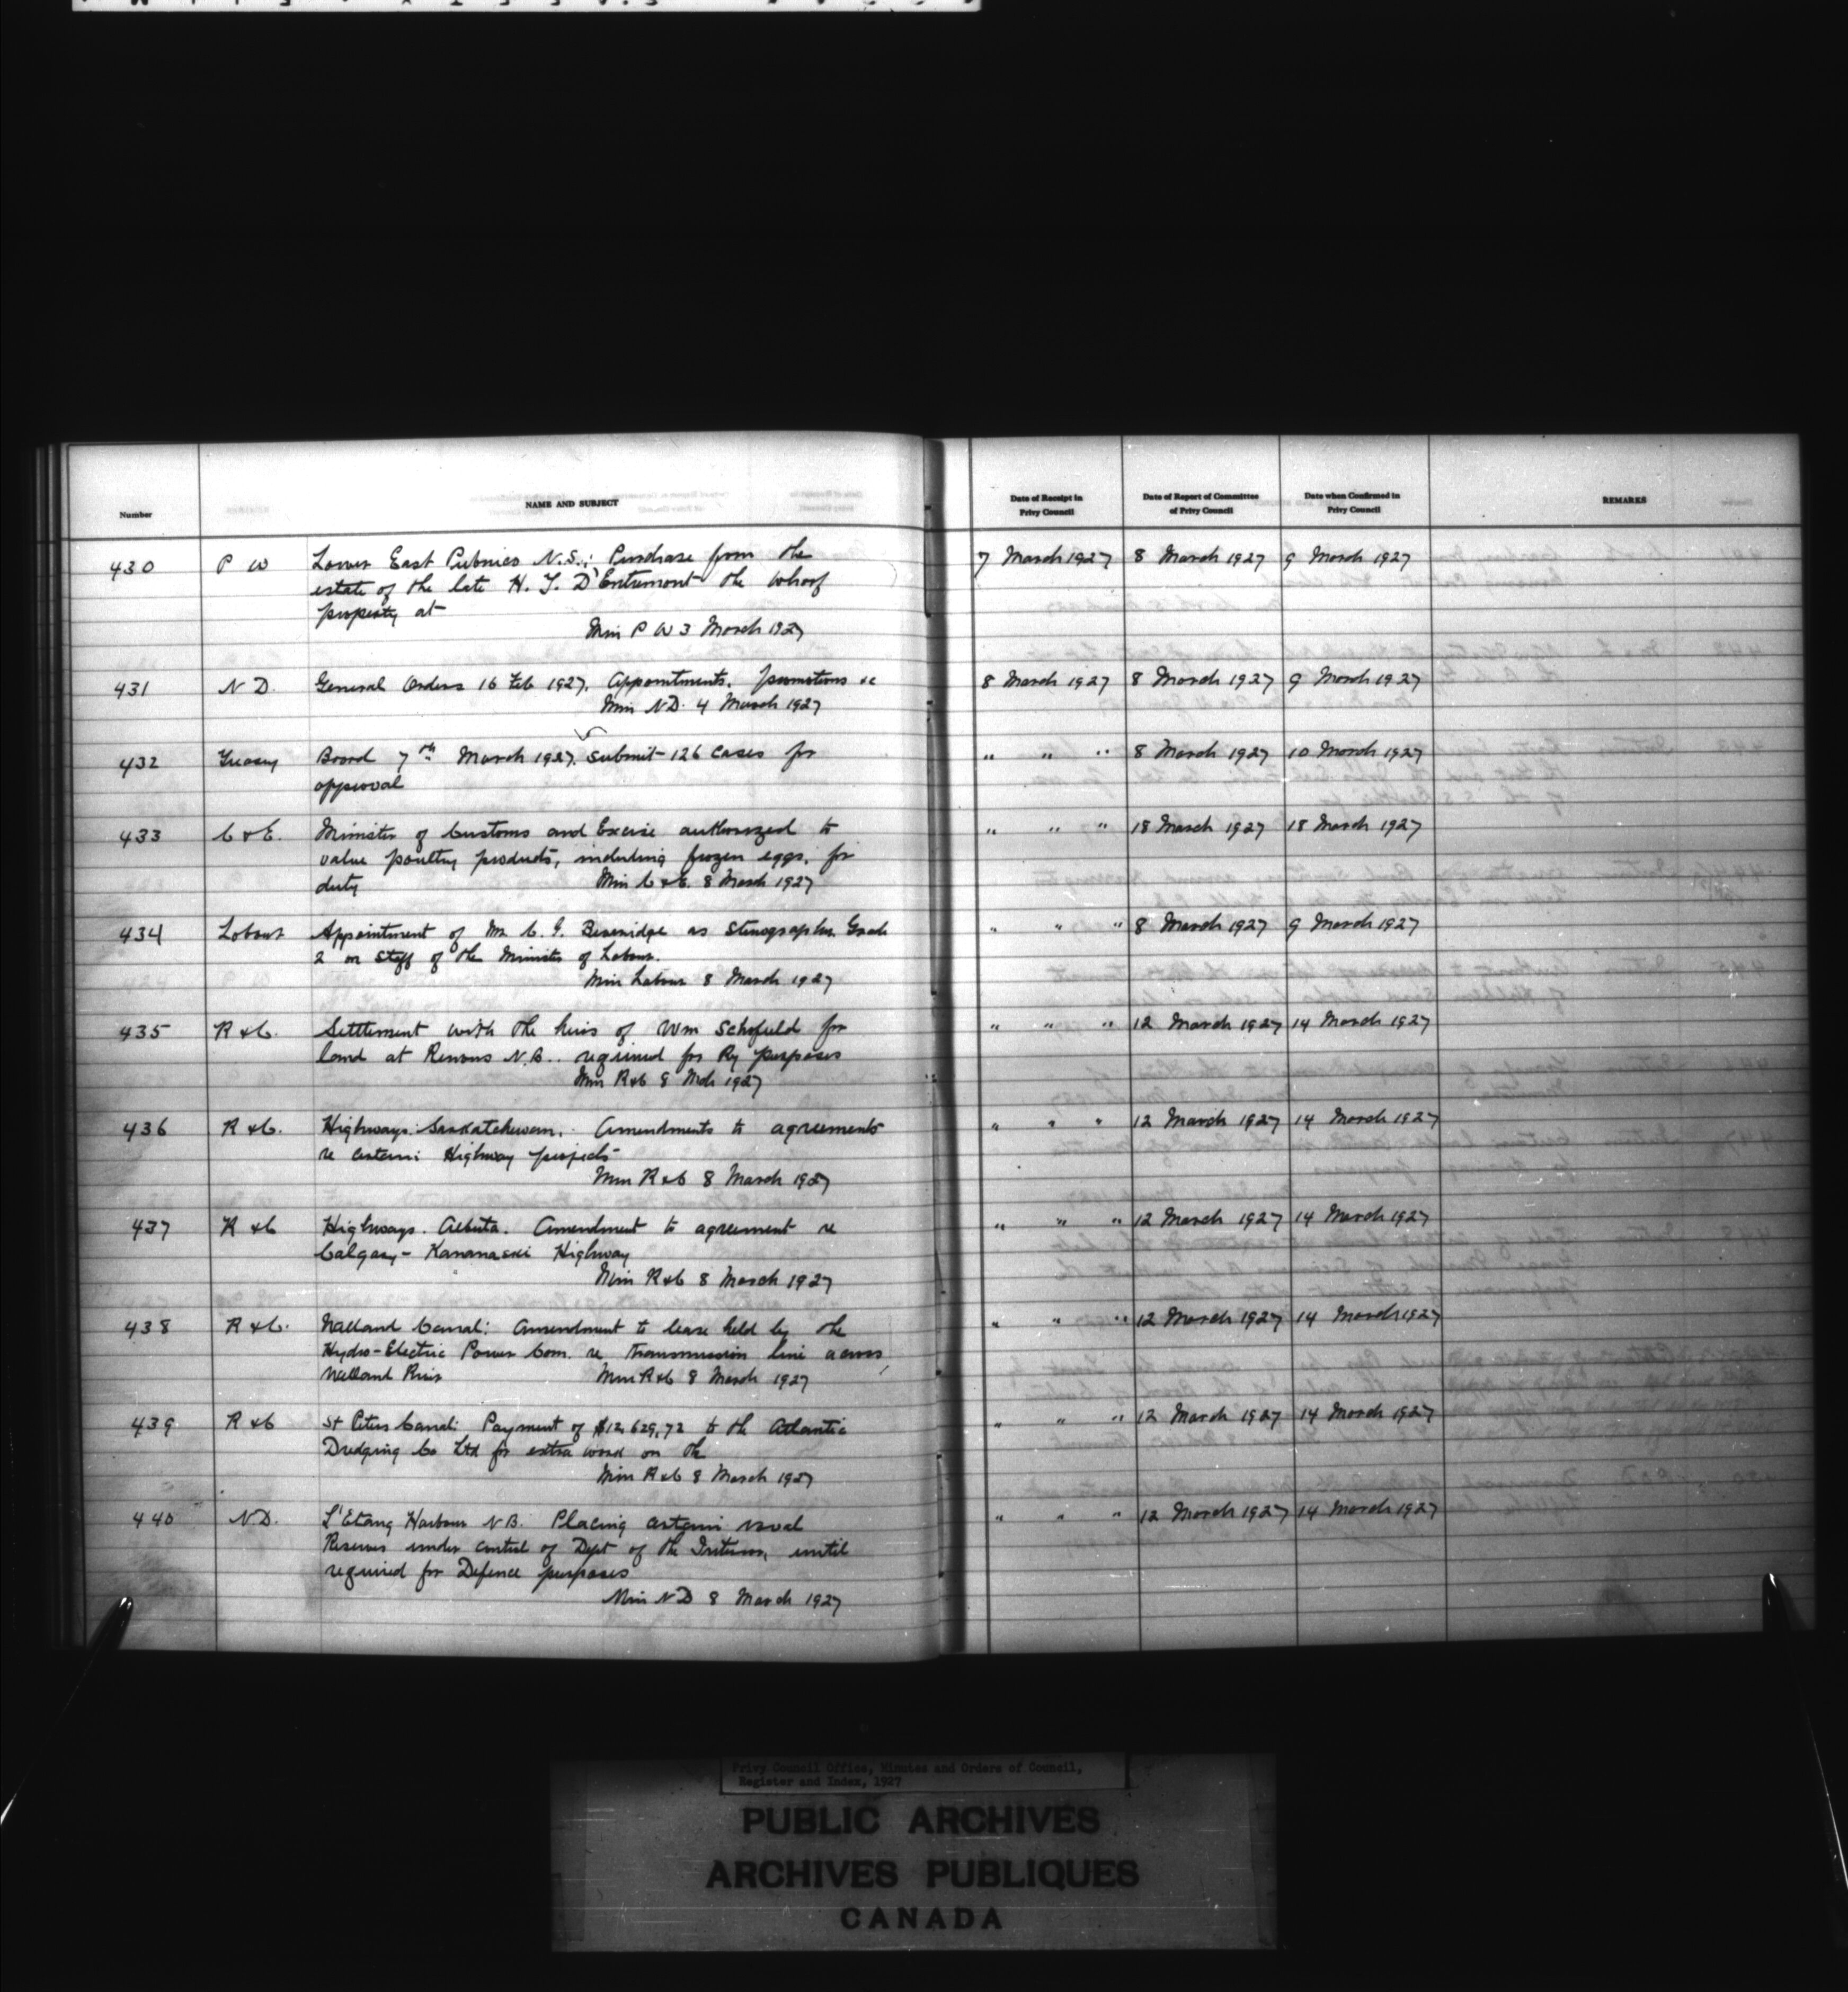 Number
NAME AND SUBJECT
Date of Receipt in
Privy Council
Date of Report of Committee
of Privy Council
Date when Confirmed in
Privy Council
REMARKS
430 P W Lower East Pubnico N.S.: Purchase from the 7 March 1927 8 March 1927 9 March 1927
estate of the late H. T. D'Entremont the wharf
property at
Min P W 3 March 1927
431 N D. General Orders 16 Feb 1927. Appointments, promotions &c 8 March 1927 8 March 1927 9 March 1927
Min ND. 4 March 1927
432 Treasy Board 7th March 1927. Submit 126 cases for " " " 8 March 1927 10 March 1927
approval
433 C & E. Minister of Customs and Excise authorized to " " " 18 March 1927 18 March 1927
value poultry products, including frozen eggs, for
duty Min C & E. 8 March 1927
434 Labour Appointment of Mr. C. G. Beveridge as Stenographer Grade " " " 8 March 1927 9 March 1927
2 on Staff of the Minister of Labour.
Min Labour 8 March 1927
435 R & C. Settlement with the heirs of Wm Schofield for " " " 12 March 1927 14 March 1927
land at Renous N.B.. required for Ry purposes
Min R&C 8 Mch 1927
436 R & C. Highways. Saskatchewan. Amendments to agreements " " " 12 March 1927 14 March 1927
re certain Highway projects
Min R&C 8 March 1927
437 R & C Highways. Alberta. Amendment to agreement re " " " 12 March 1927 14 March 1927
Calgary - Kananaski Highway
Min R&C 8 March 1927
438 R & C. Welland Canal: Amendment to lease held by the " " " 12 March 1927 14 March 1927
Hydro-Electric Power Com. re transmission line across
Welland River Min R&C 8 March 1927
439 R & C St Peters Canal: Payment of $12,629.72 to the Atlantic " " " 12 March 1927 14 March 1927
Dredging Co Ltd for extra work on the
Min R&C 8 March 1927
440 N.D. L'Etang Harbour N B. Placing certain naval " " " 12 March 1927 14 March 1927
Reserves under control of Dept of the Interior, until
required for Defence purposes
Min N D 8 March 1927
Privy Council Office, Minutes and Orders of Council,
Register and Index, 1927
PUBLIC ARCHIVES
ARCHIVES PUBLIQUES
CANADA